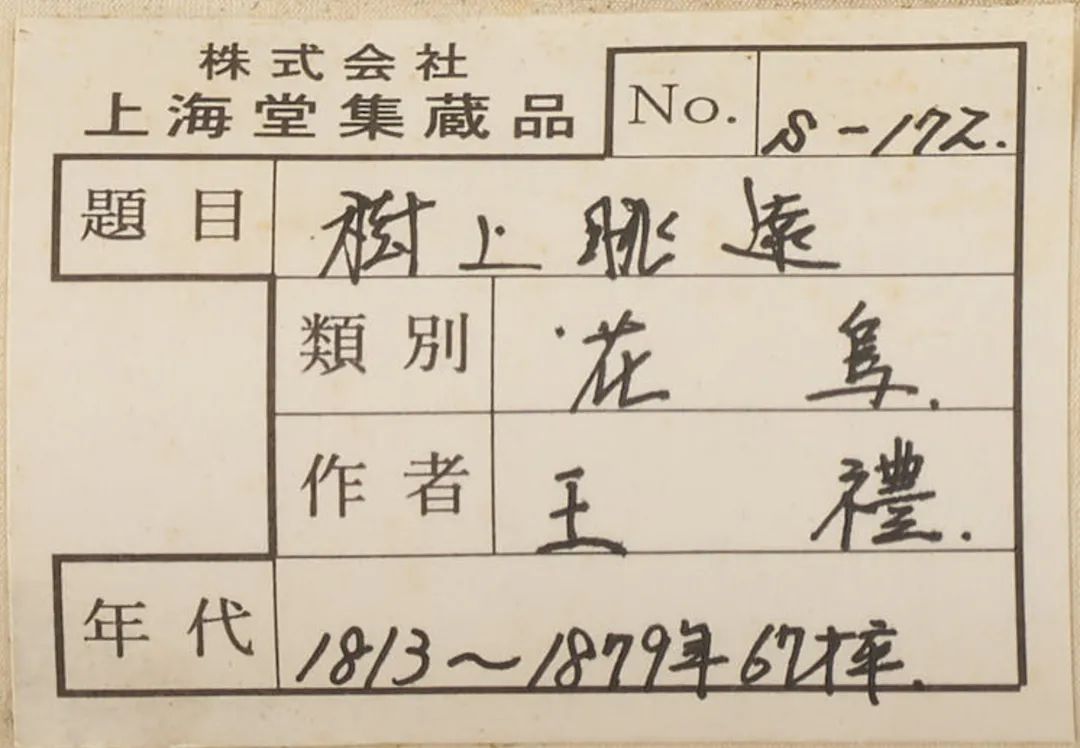 株式会社
上海堂集蔵品
No. S-172.
題目 樹上眺遠
類別 花鳥.
作者 王禮.
年代 1813~1879年67才卒.